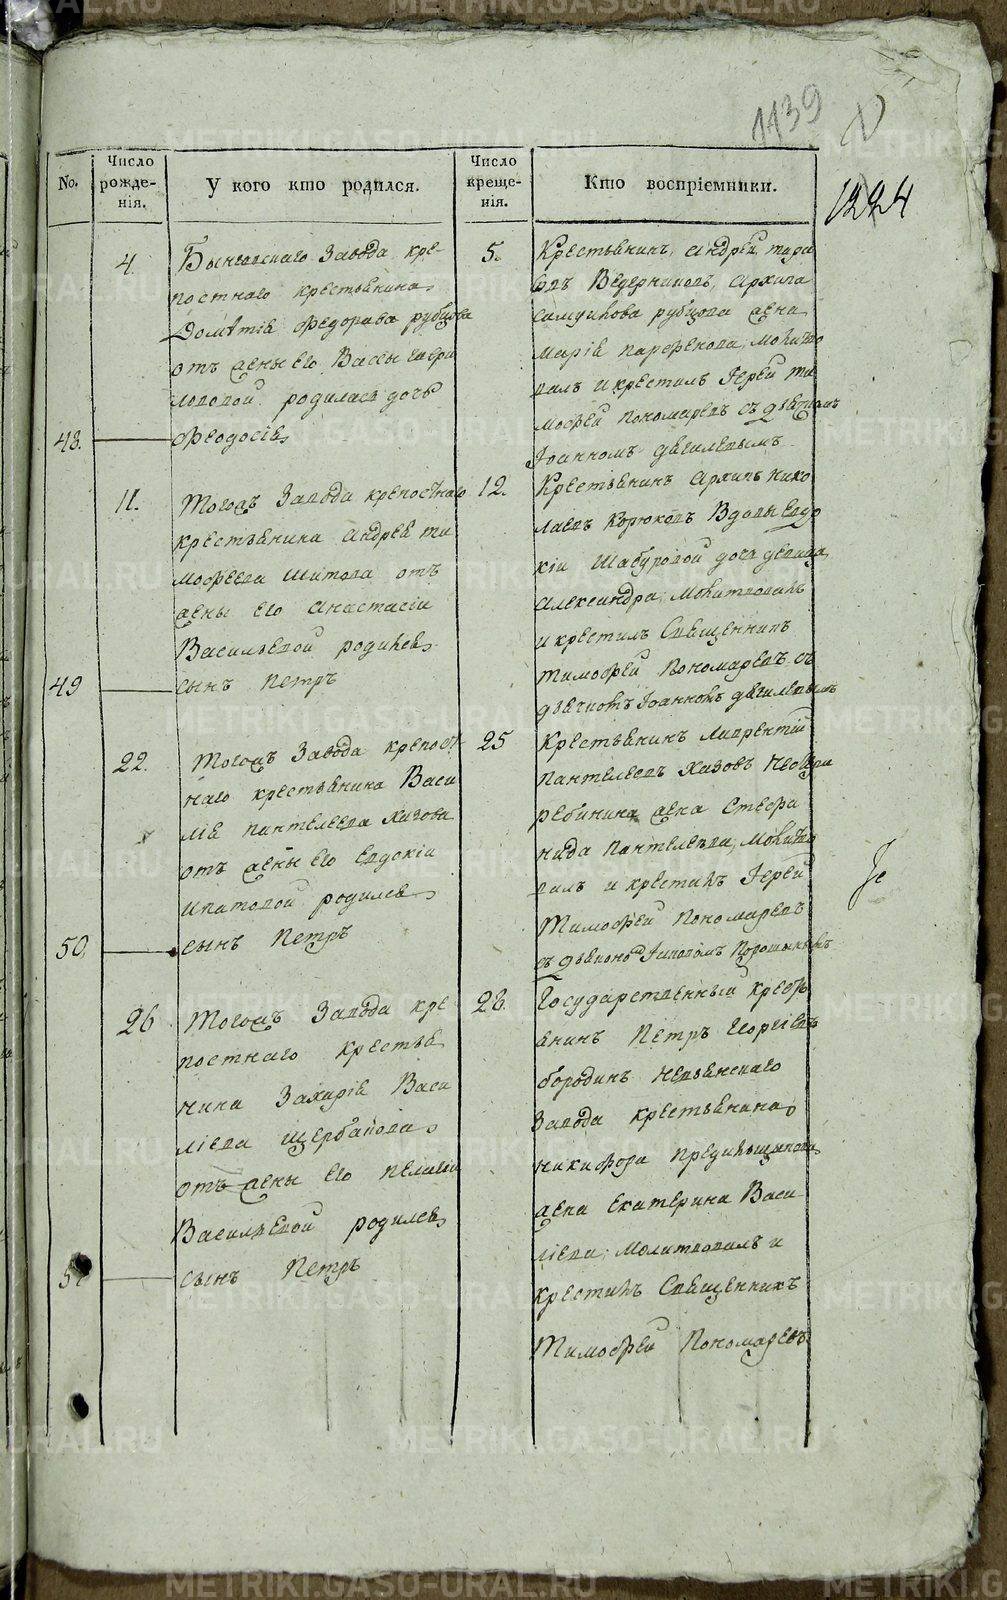 1139
1224
No.
Число рожде-
нія.
У кого кто родился.
Число креще-
нія.
Кто воспріемники.
4.
Быньговскаго Завода кре-
постнаго крестьянина
Дометія Федорова рубцова
отъ жены его Вассы Гаври
ловой родилась дочь
48.
Феодосія
5.
Крестьянинъ Андрей тара
совъ Ведерниковъ, Архипа
рубцова жена
Марія парфенова, молитво
валъ и крестилъ Іерей ти
мофей пономаревъ съ дьячкомъ
Іоанномъ
11.
Тогожъ Завода крепостнаго
крестьянина Андрея ти
мофеева Шитова отъ
жены его Анастасіи
Васильевой родился
49
сынъ Петръ
12.
Крестьянинъ Архипъ Нико
лаевъ Корюковъ Вдовы Евдо
кіи Шабуровой дочь девица
Александра, Молитвовалъ
и крестилъ Священникъ
тимофей Пономаревъ съ
дьячкомъ Іоанномъ
22.
Тогожъ Завода крепост
наго крестьянина Васи
лія пантелеева Хизова
отъ жены его Евдокіи
Ипатовой родился
50.
сынъ Петръ
25
Крестьянинъ Лаврентій
Пантелеевъ Хизовъ
ребинина жена Стефа
нида Пантелеева, Молитво
валъ и крестилъ Іерей
Тимофей Пономаревъ
съ дьякономъ
26
Тогожъ Завода кре
постнаго крестья
нина Захарія Васи
лієва Щербакова
отъ жены его пелагіи
Васильевой родился
сынъ Петръ
28.
Государственный кресть
янинъ Петръ Георгіевъ
бородинъ Невьянскаго
Завода крестьянина
никифора
жена Екатерина Васи
лієва, Молитвовалъ и
крестилъ Священникъ
Тимофей Пономаревъ
METRIKI.GASO-URAL.RU